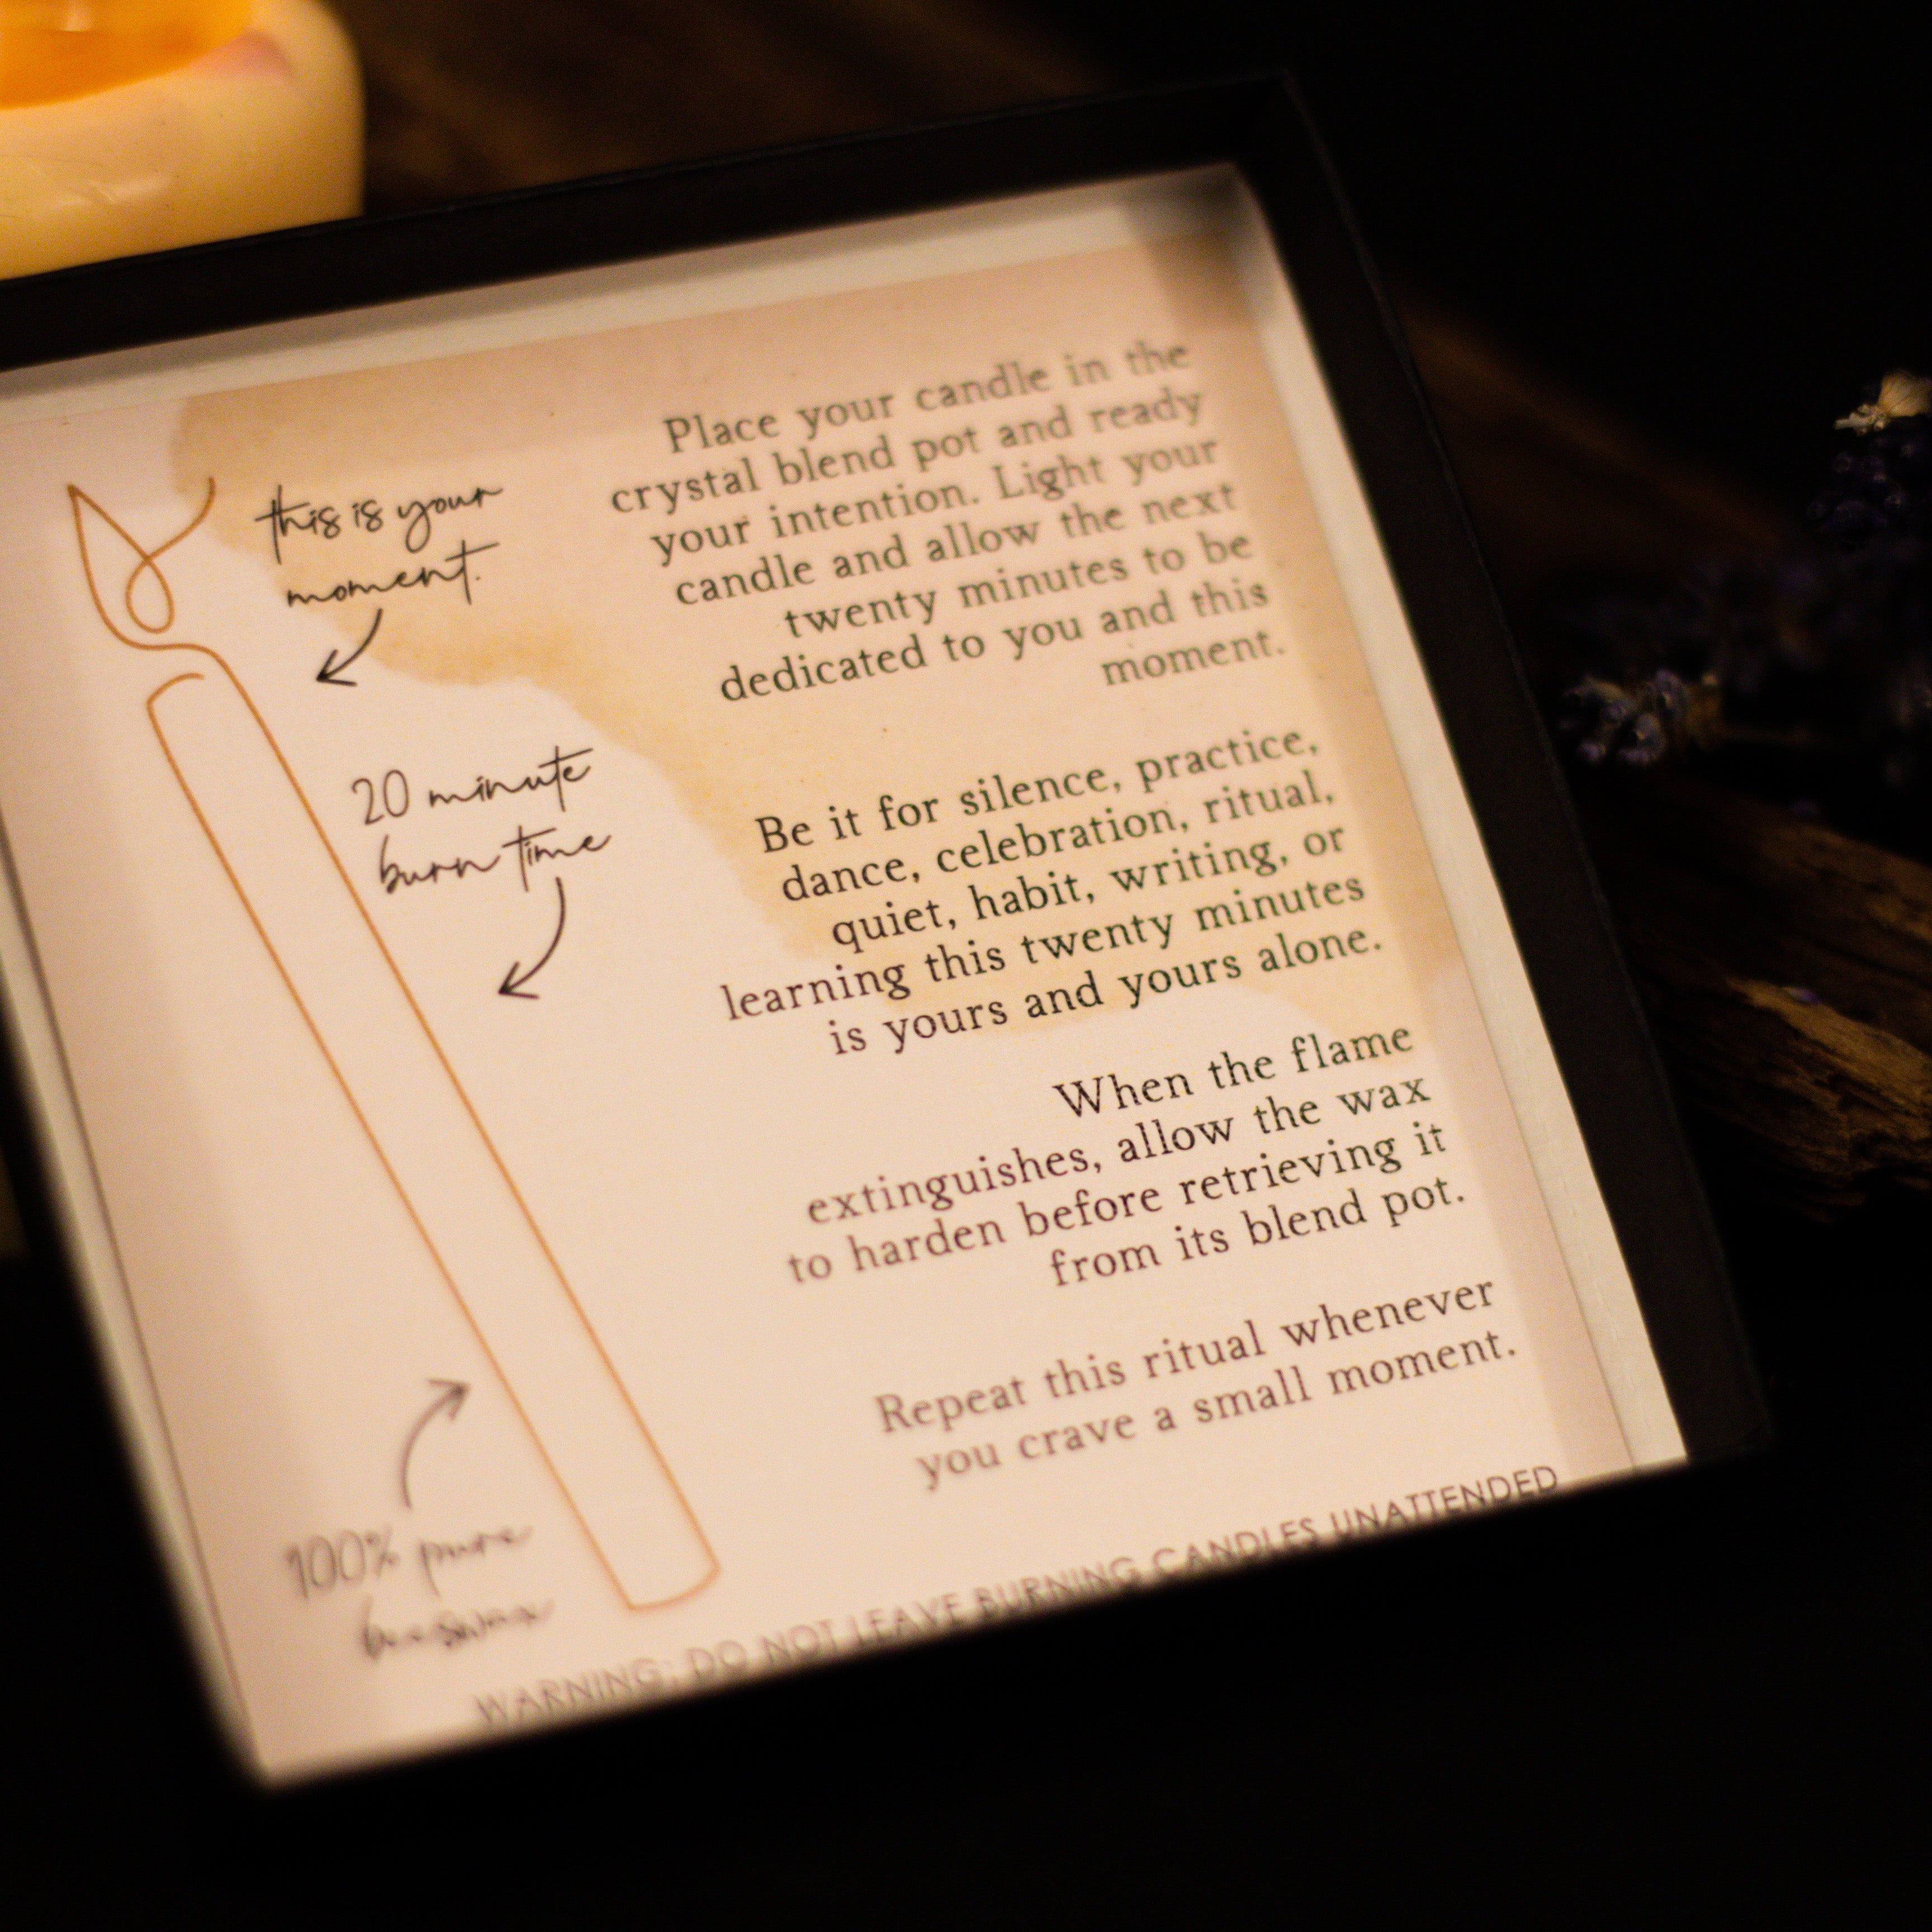 this is your
moment.
20 minute
burn time
100% pure
beeswax
Place your candle in the
crystal blend pot and ready
your intention. Light your
candle and allow the next
twenty minutes to be
dedicated to you and this
moment.
Be it for silence, practice,
dance, celebration, ritual,
quiet, habit, writing, or
learning this twenty minutes
is yours and yours alone.
When the flame
extinguishes, allow the wax
to harden before retrieving it
from its blend pot.
Repeat this ritual whenever
you crave a small moment.
WARNING: DO NOT LEAVE BURNING CANDLES UNATTENDED